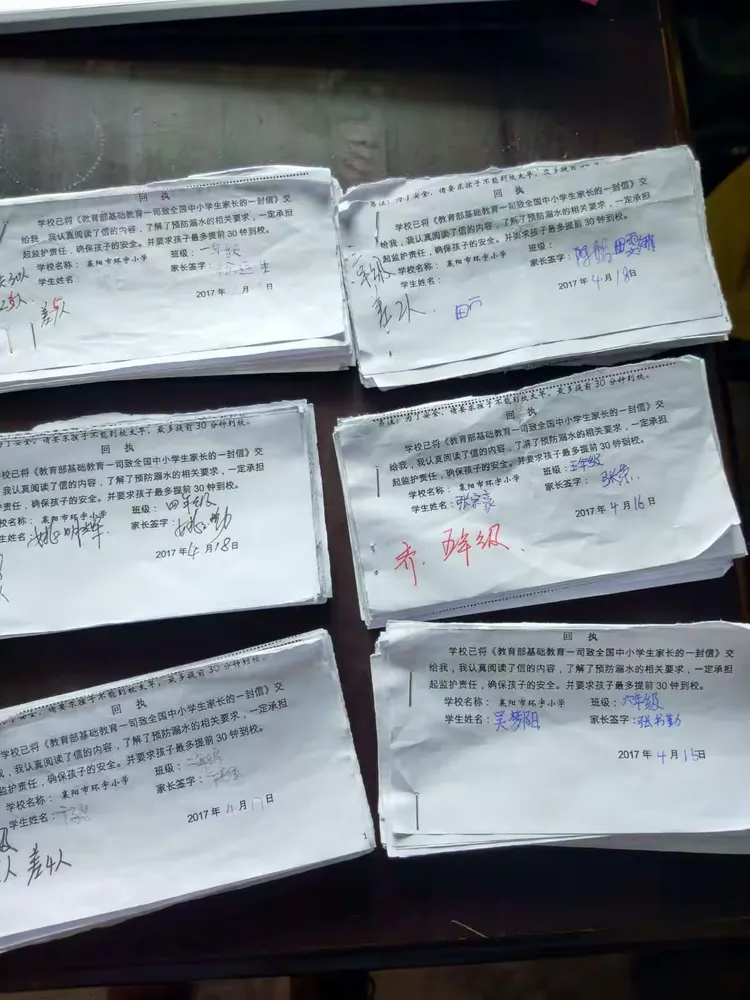 回 执
学校已将《教育部基础教育一司致全国中小学生家长的一封信》交
给我，我认真阅读了信的内容，了解了预防溺水的相关要求，一定承担
起监护责任，确保孩子的安全。并要求孩子最多提前30钟到校。
学校名称： 枣阳市环宇小学 班级：一年级
学生姓名： 家长签字：
2017 月 日
差5人
备注：为了安全，请要求孩子不能到校太早，最多提前30
回 执
学校已将《教育部基础教育一司致全国中小学生家长的一封信》交
给我，我认真阅读了信的内容，了解了预防溺水的相关要求，一定承担
起监护责任，确保孩子的安全。并要求孩子最多提前30钟到校。
学校名称： 枣阳市环宇小学 班级：
学生姓名： 家长签字：
2017年4月18日
差2人
为了安全，请要求孩子不能到校太早，最多提前30分钟到校。
回 执
学校已将《教育部基础教育一司致全国中小学生家长的一封信》交
，我认真阅读了信的内容，了解了预防溺水的相关要求，一定承担
护责任，确保孩子的安全。并要求孩子最多提前30钟到校。
学校名称： 枣阳市环宇小学 班级：四年级
学生姓名：姚明 家长签字：姚
2017年4月18日
备注：为了安全，请要求孩子不能到校太早，最多提前30分钟到校。
回 执
学校已将《教育部基础教育一司致全国中小学生家长的一封信》交
给我，我认真阅读了信的内容，了解了预防溺水的相关要求，一定承担
起监护责任，确保孩子的安全。并要求孩子最多提前30钟到校。
学校名称： 枣阳市环宇小学 班级：五年级
学生姓名：张宗豪 家长签字：张
2017年4月16日
齐、五年级
安全，请要求孩子不能到校太早，最多提前30分钟到校。
回 执
学校已将《教育部基础教育一司致全国中小学生家长的一封信》交
，我认真阅读了信的内容，了解了预防溺水的相关要求，一定承担
护责任，确保孩子的安全。并要求孩子最多提前30钟到校。
学校名称： 枣阳市环宇小学 班级：
学生姓名： 家长签字：
2017年 月17日
差4人
回 执
学校已将《教育部基础教育一司致全国中小学生家长的一封信》交
给我，我认真阅读了信的内容，了解了预防溺水的相关要求，一定承担
起监护责任，确保孩子的安全。并要求孩子最多提前30钟到校。
学校名称： 枣阳市环宇小学 班级：六年级
学生姓名：吴梦阳 家长签字：张书勤
2017年4月15日